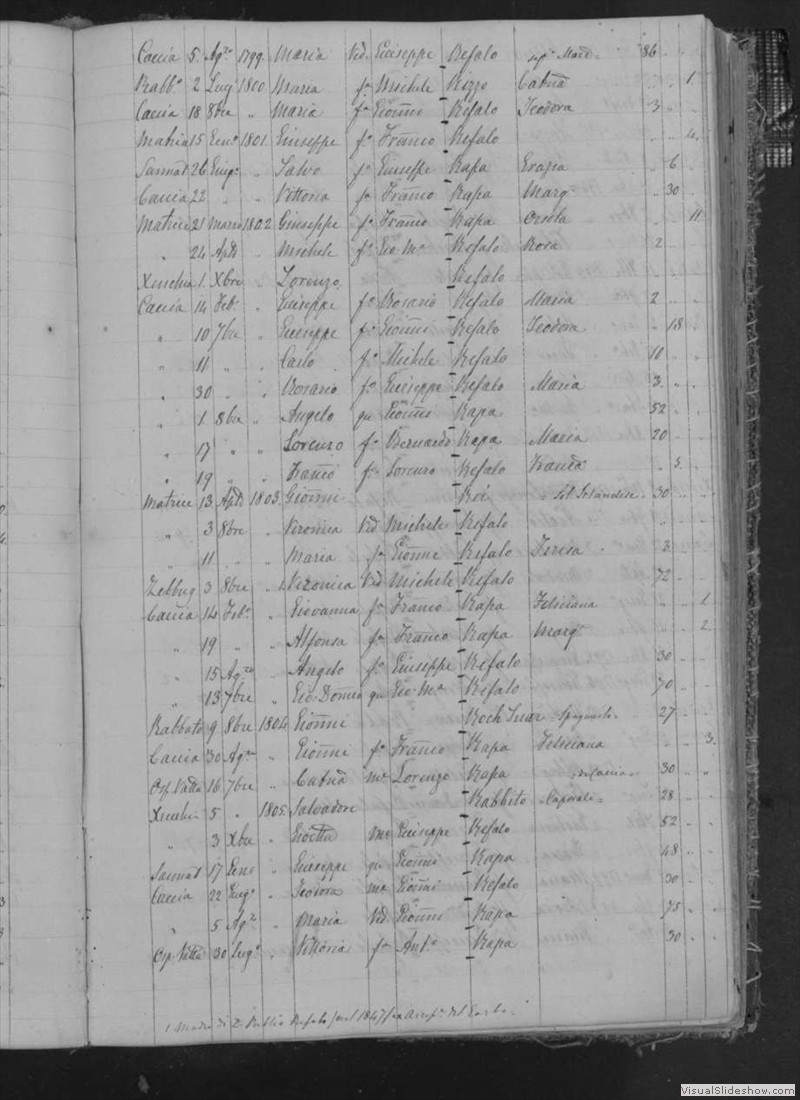 Caccia 5 Ag.to 1799 Maria Vid. Giuseppe Refalo 86
Rabb.o 2 Lug 1800 Maria f.a Michele Rizzo Catna 1
Caccia 18 8bre " Maria f.a Gionni Refalo Teodora 3
Matrice 15 Gen.o 1801 Giuseppe f.o Franco Refalo
Sannat 26 Giug.o " Salvo f.o Giuseppe Rapa Grazia 6
Caccia 22 " " Vittoria f.a Franco Rapa Marg.a 30
Matrice 21 Marzo 1802 Giuseppe f.o Franco Rapa Orsola 11
" 24 Aple " Michele f.o Gio M.a Refalo Rosa 2
Xeuchia 1 Xbre " Lorenzo Refalo
Caccia 14 Feb.o " Giuseppe f.o Rosario Refalo Maria 2
" 10 7bre " Giuseppe f.o Gionni Refalo Teodora 18
" 11 " " Carlo f.o Michele Refalo 10
" 30 " " Rosario f.o Giuseppe Refalo Maria 3
" 1 8bre " Angelo qu Gionni Rapa 52
" 17 " " Lorenzo f.o Bernardo Rapa Maria 20
" 19 " " Franco f.o Lorenzo Refalo Franca
Matrice 13 Aple 1803 Gionni Sol. Irlandese 30
" 3 8bre " Veronica Vid Michele Refalo
" 11 " " Maria f.a Gionni Refalo Teresa 3
Zebbug 3 8bre " Veronica Vid Michele Refalo 72
Caccia 14 Feb.o " Giovanna f.a Franco Rapa Feliciana 1
" 19 " " Alfonsa f.a Franco Rapa Marg.a 2
" 15 Ag.to " Angelo f.o Giuseppe Refalo 30
" 13 7bre " Gio: Domco qu Gio: M.a Refalo 70
Rabbato 9 8bre 1804 Gionni Spagnuolo 27
Caccia 30 Ag.to " Gionni f.o Franco Rapa Feliciana 3
Osp Vitta 16 7bre " Catna me Lorenzo Rapa 30
Xeuchia 5 " 1805 Salvadore Rabbito Caporale 28
" 3 Xbre " me Giuseppe Refalo 52
Sannat 17 Gen.o " Giuseppe qu Gionni Rapa 48
Caccia 22 Giug.o " Teodora me Gionni Refalo 30
" 5 Ag.to " Maria Vid. Gionni Rapa 75
Osp Vitta 30 Lug.o " Vittoria f.a Ant.o Rapa 30
1 Madre di Publio Refalo 1847
VisualSlideshow.com